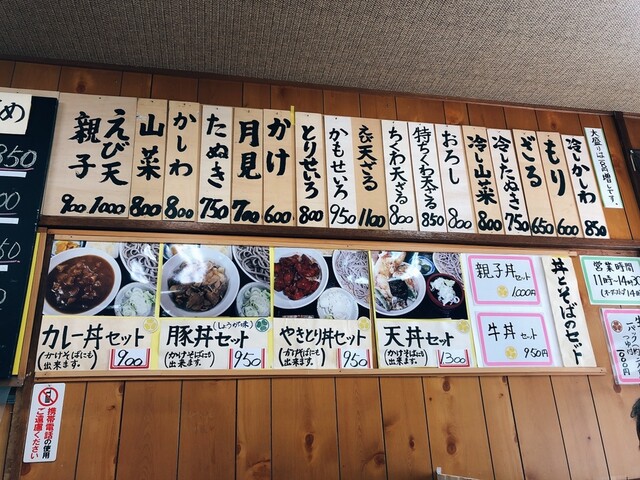 大盛りは百円増しです。
冷しかしわ 850
もり 600
ざる 650
冷したぬき 750
冷し山菜 800
おろし 800
特ちくわ天ざる 850
ちくわ天ざる 800
えび天ざる 1100
かもせいろ 950
とりせいろ 800
かけ 600
月見 700
たぬき 750
かしわ 800
山菜 800
えび天 1000
親子 900
め
850
丼とそばのセット
親子丼セット
1,000円
牛丼セット
950円
天丼セット
(かけそばにも出来ます。
1300
やきとり丼セット
(かけそばにも出来ます。
950
豚丼(しょうが味)セット
(かけそばにも出来ます。
950
カレー丼セット
(かけそばにも出来ます。
900
営業時間
携帯電話の使用
ご遠慮ください